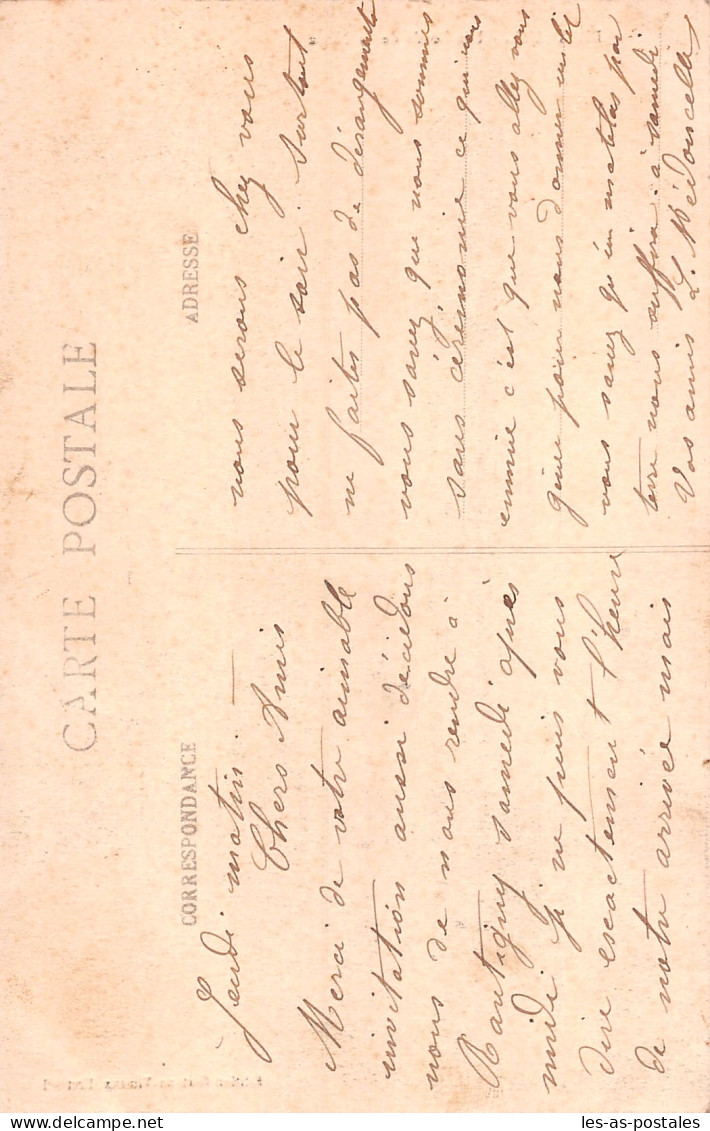 CARTE POSTALE
CORRESPONDANCE
Jeudi matin.
Chers Amis
Merci de votre aimable
invitation aussi décidons
nous de nous rendre à
Rantigny samedi après
midi je ne puis vous
dire exactement l'heure
de notre arrivée mais
ADRESSE
nous serons chez vous
pour le soir. Surtout
ne faites pas de dérangements
vous savez que nous sommes
sans cérémonie ce qui nous
ennuie c'est que vous allez vous
gêner pour nous donner un lit
vous savez qu'un matelas par
terre nous suffira. à samedi
Vos amis L.
les-as-postales.com